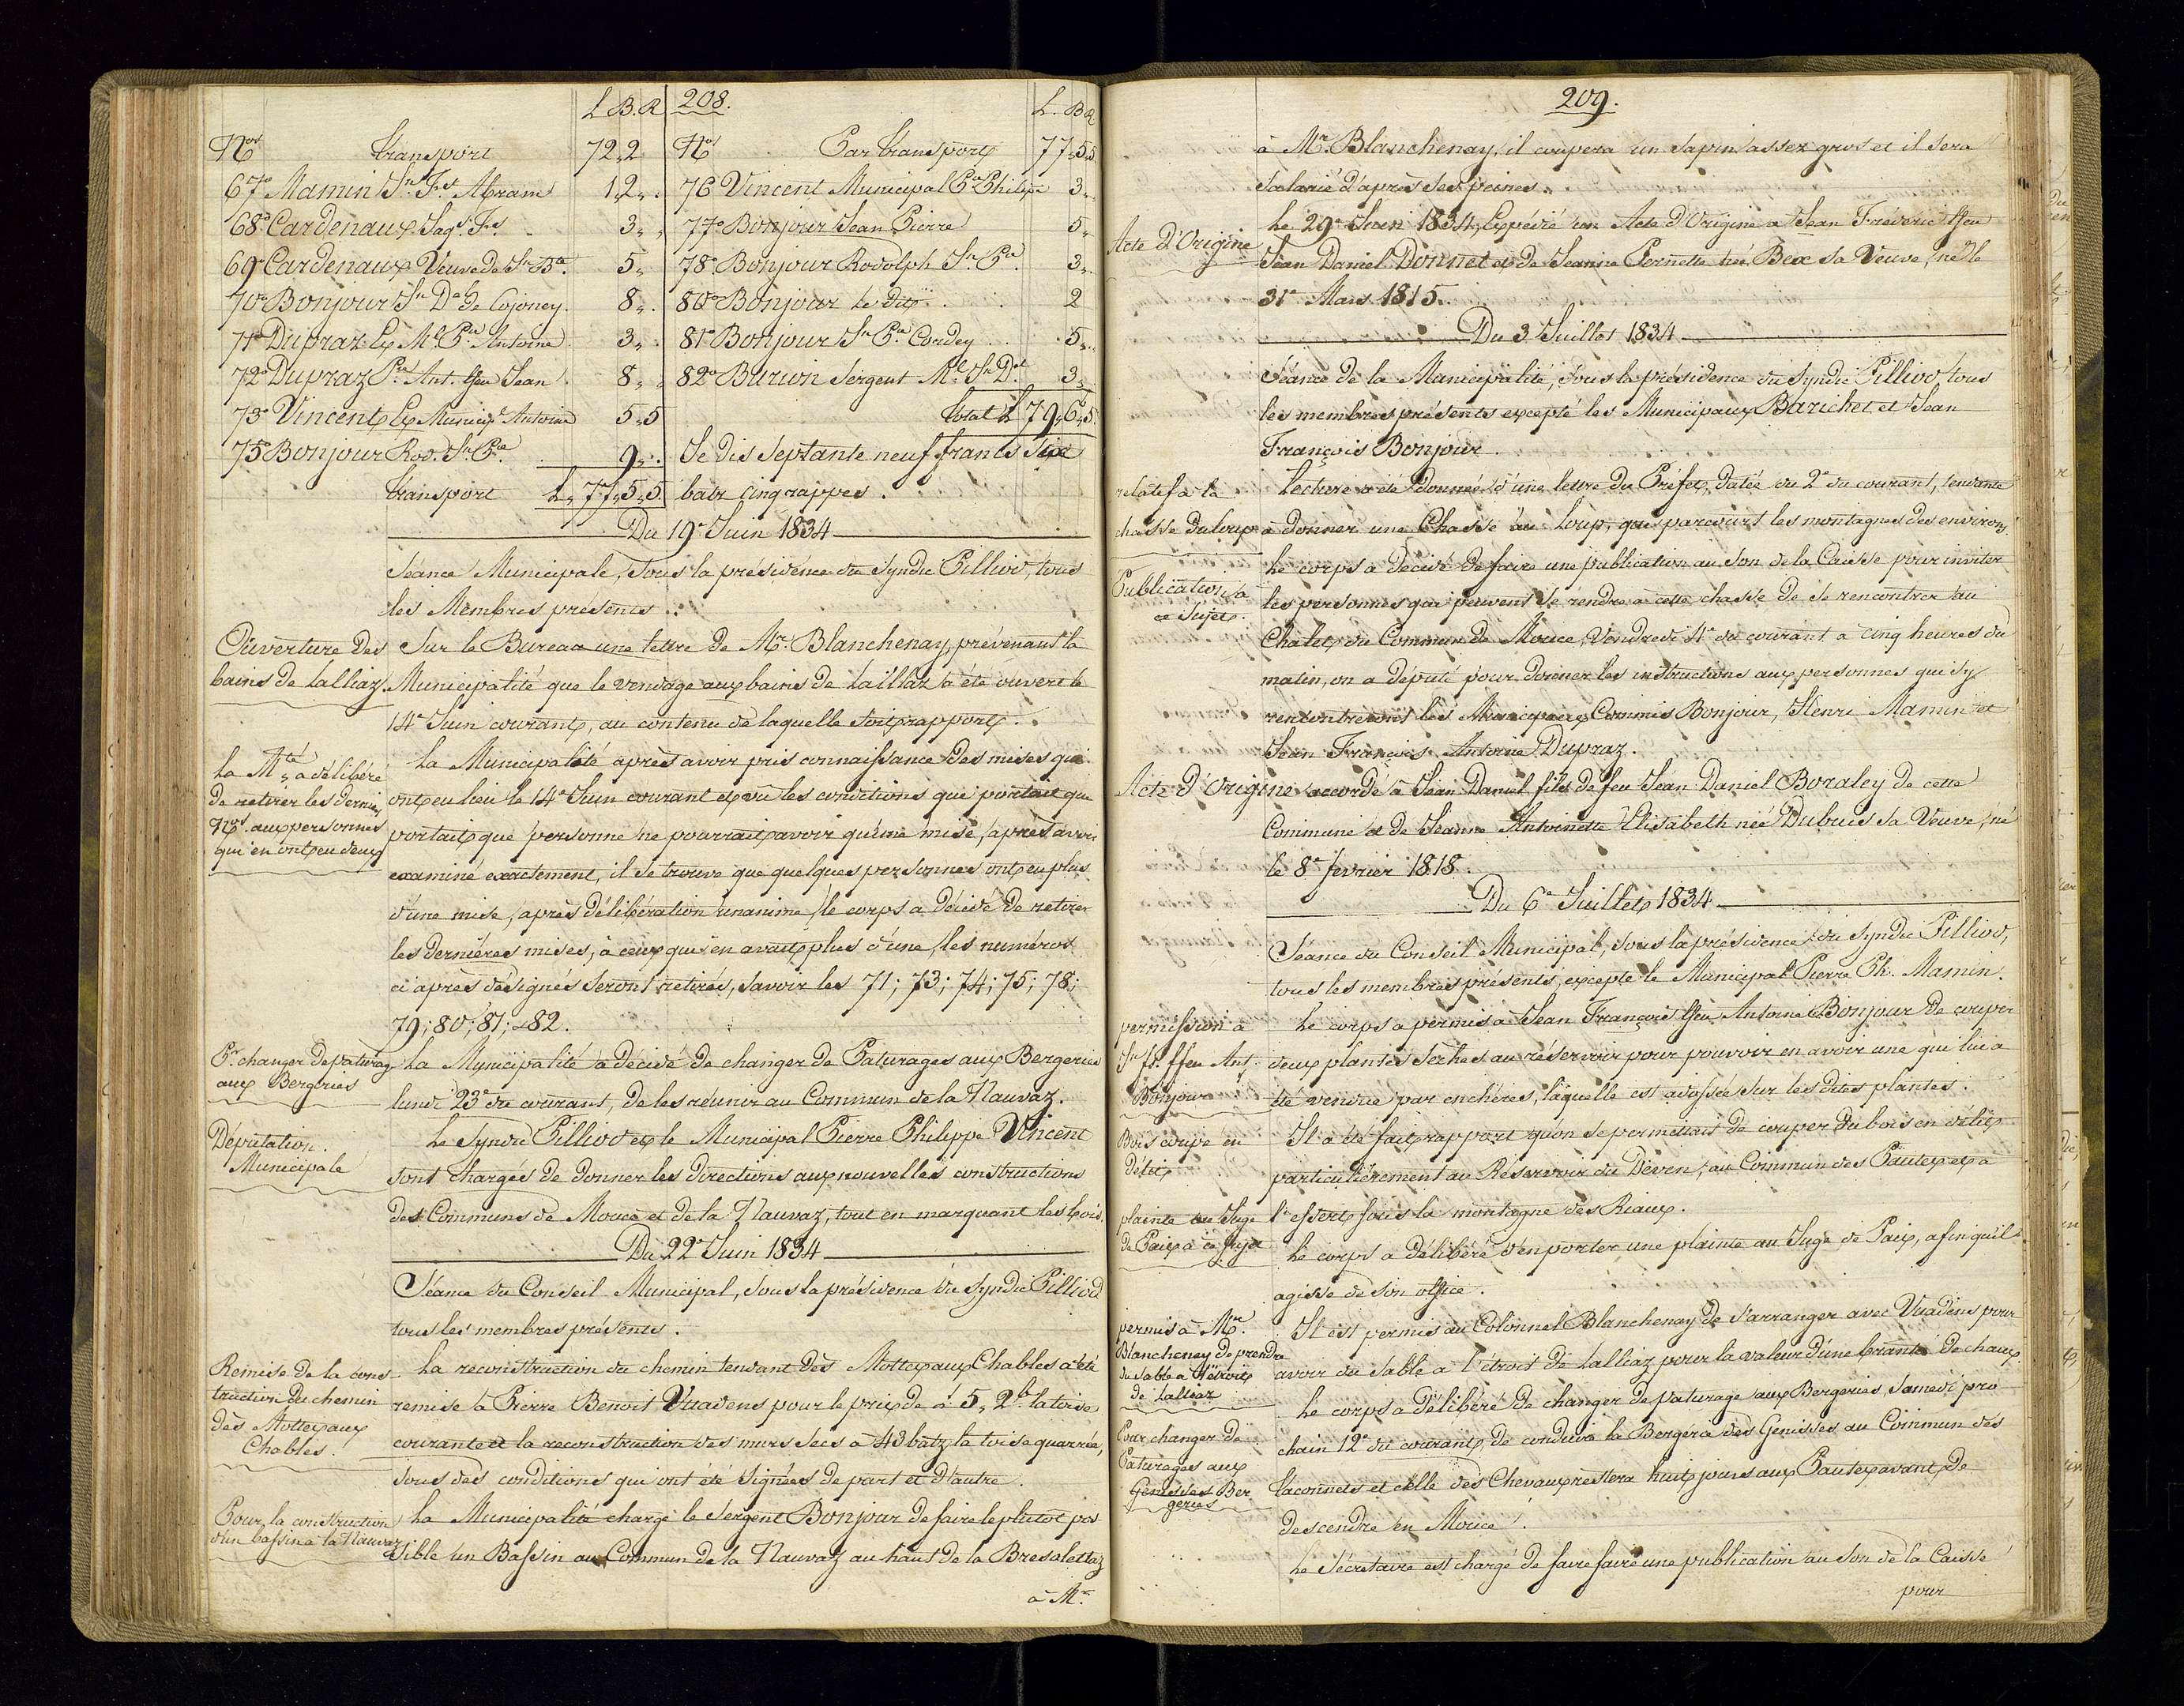 208.
L B. R
Nos transport 72,,2
67° Mamin Jn Fs Abram 12,,.
68° Cardenaux Sagr Fs 3,,.
69° Cardenaux Veuve de Jn Bte. 5,,
70° Bonjour Jn Dl de Cojoney. 8,,.
71° Dupraz Ex Ml Pre Antoine 3,,.
72° Dupraz Pre Ant. ffeu Jean 8,,.
73° Vincent Ex Municipl Antoine 5,,5
75° Bonjour Rod. Jn Pre. 9,,.
transport L,, 77,,5,,5
L. B R
Nos Par transport 77,,5,,5
76 Vincent Municipal Pre Philipe 3,,.
77° Bonjour Jean Pierre 5,,
78° Bonjour Rodolph Jn Pre. 3,,.
80° Bonjour le dit 2
81° Bonjour Jn Pre. Cordey 5,,.
82° Burion Sergent Ml Jn Dl. 3,,
total L 79,,6,,5
Je dis septante neuf francs six
batz cinq rappes.
Du 19e Juin 1834
Séance Municipale, sous la présidence du Syndic Pilliod, tous
les Membres présents.
Ouverture des
bains de Lalliaz.
Sur le Bureau une lettre de Mr. Blanchenay, prévenant la
Municipalité que le vendage aux bains de Lailliaz a été ouvert le
14e Juin courant, au contenu de laquelle soit rapport.
La Mté a délibéré
de retirer les derniers
Nos. aux personnes
qui en ont eu deux
La Municipalité après avoir pris connaissance des mises qui
ont eu lieu le 14e Juin courant et vu les conditions que portait que
portait que personne ne pourrait avoir qu'une mise, après avoir
examiné exactement, il se trouve que quelques personnes ont eu plus
d'une mise, après délibération unanime, le corps a décidé de retirer
les dernières mises, à ceux qui en avait plus d'une, les numéros
ci après désignés seront retirés, savoir les 71; 73; 74; 75; 78;
79; 80; 81; & 82.
Pr. changer de paturag
aux Bergeries
La Municipalité a décidé de changer de Paturages aux Bergeries
lundi 23e du courant, de les réunir au Commun de la Nauvaz.
Députation
Municipale
Le Syndic Pilliod et le Municipal Pierre Philippe Vincent
sont chargés de donner les directions aux nouvelles constructions
des Communs de Mouce et de la Nauvaz, tout en marquant les bois.
Du 22e Juin 1834
Séance du Conseil Municipal, sous la présidence du Syndic Pilliod
tous les membres présents.
Remise de la cons-
truction du chemin
dès Mottex aux
Chables.
La reconstruction du chemin tendant dès Mottex aux Chables a été
remise à Pierre Benoit Vuadens pour le prix de L 5,, 2b. la toise
courante et la reconstruction des murs secs à 43 batz la toise quarrée,
sous des conditions qui ont été signées de part et d'autre.
Pour la construction
d'un bassin à la Nauvaz
La Municipalité charge le Sergent Bonjour de faire le plutot pos
sible un Bassin au Commun de la Nauvaz au haut de la Bresalettaz
à Mr.
209.
à Mr. Blanchenay, il coupera un sapin assez gros et il sera
salarié d'après ses peines.
Acte d'Origine
Le 29e Juin 1834, Expédié un Acte d'Origine à Jean Fréderic ffeu
Jean Daniel Donnet et de Jeanine Pernette née Bex sa Veuve, né le
31e Mars 1815.
Du 3 Juillet 1834
Séance de la Municipalité, sous la présidence du Syndic Pilliod tous
les membres présents excepté les Municipaux Barichet et Jean
François Bonjour.
relatif à la
chasse du loup
Lecture a été donnée d'une lettre du Préfet, datée du 2e du courant, tendante
à donner une Chasse au loup, qui parcourt les montagnes des environs.
Publication à
ce Sujet.
Le corps a décidé de faire une publication au son de la Caisse pour inviter
les personnes qui peuvent se rendre à cette chasse de se rencontrer au
Chalet du Commun de Mouce, Vendredi 4e du courant à cinq heures du
matin, on a député pour donner les instructions aux personnes qui s'y
rencontreront les Municipaux Commis Bonjour, Henri Mamin et
Jean François Antoine Dupraz.
Acte d'Origine accordé à Jean Daniel fils de feu Jean Daniel Boraley de cette
Commune et de Jeanne Antoinette Elisabeth née Dubuis sa Veuve, né
le 8e février 1818.
Du 6e Juillet 1834
Séance du Conseil Municipal, sous la présidence du Syndic Pilliod,
tous les membres présents, excepté le Municipal Pierre Ph. Mamin.
permission à
Jn fs. ffeu Ant.
Bonjour
Le corps a permis à Jean François ffeu Antoine Bonjour de couper
deux plantes sèches au réservoir pour pouvoir en avoir une qui lui a
été vendue par enchères, laquelle est adossée sur les dites plantes.
Bois coupé en
délit
Il a été fait rapport qu'on se permettait de couper du bois en délit
particulièrement au Réservoir du Déven, au Commun des Pautex et à
l'essert sous la montagne des Riaux.
plainte au Juge
de Paix à ce sujet
Le corps a délibéré d'en porter une plainte au Juge de Paix, afin qu'il
agisse de son office.
permis à Mr.
Blancheney de prendre
du sable à l'étroit
de Lalliaz
Il est permis au Colonnel Blanchenay de s'arranger avec Vuadens pour
avoir du sable à l'étroit de Lalliaz pour la valeur d'une brante de chaux.
Pour changer de
Paturages aux
Genisses Ber
geries
Le corps a délibéré de changer de paturage aux Bergeries, Samedi pro
chain 12e du courant, de conduire la Bergerie des Genisses au Commun des
Laconnets et celle des Chevaux restera huit jours aux Pautex avant de
descendre en Mouce.
Le Sécretaire est chargé de faire faire une publication au son de la Caisse
pour